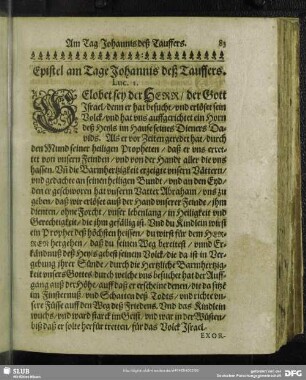 Am Tag Johannis deß Tauffers. 83
Epistel am Tage Johannis deß Tauffers.
Luc. 1.
GElobet sey der HERR / der Gott
Israel / denn er hat besucht / und erlöset sein
Volck / und hat uns auffgerichtet ein Horn
deß Heyls im Hause seines Dieners Da-
vids. Als er vor Zeiten geredet hat / durch
den Mund seiner heiligen Propheten / daß er uns erret-
tet von unsern Feinden / und von der Hand aller die uns
hassen. Und die Barmhertzigkeit erzeigte unsern Vättern /
und gedächte an seinen heiligen Bund / und an den Eyd /
den er geschworen hat unserm Vatter Abraham / uns zu
geben / daß wir erlöset auß der Hand unserer Feinde / ihm
dieneten / ohne Forcht / unser lebenlang / in Heiligkeit und
Gerechtigkeit / die ihm gefällig ist. Und du Kindlein wirst
ein Prophet deß Höchsten heissen / du wirst für dem HER-
REN hergehen / daß du seinen Weg bereitest / unnd Er-
käntnuß deß Heyls gebest seinem Volck / die da ist in Ver-
gebung ihrer Sünde / durch die Hertzliche Barmhertzig-
keit unsers Gottes / durch welche uns besuchet hat der Auff-
gang auß der Höhe / auff daß er erscheine denen / die da sitzen
im Finsternuß / und Schatten deß Todts / und richte un-
sere Füsse auff den Weg deß Friedens. Und das Kindlein
wuchs / und ward starck im Geist / und war in der Wüsten /
biß daß er solte herfür tretten / für das Volck Israel.
EXOR-
SLUB
Wir führen Wissen.
Gefördert von der
DFG
Deutschen
Forschungsgemeinschaft